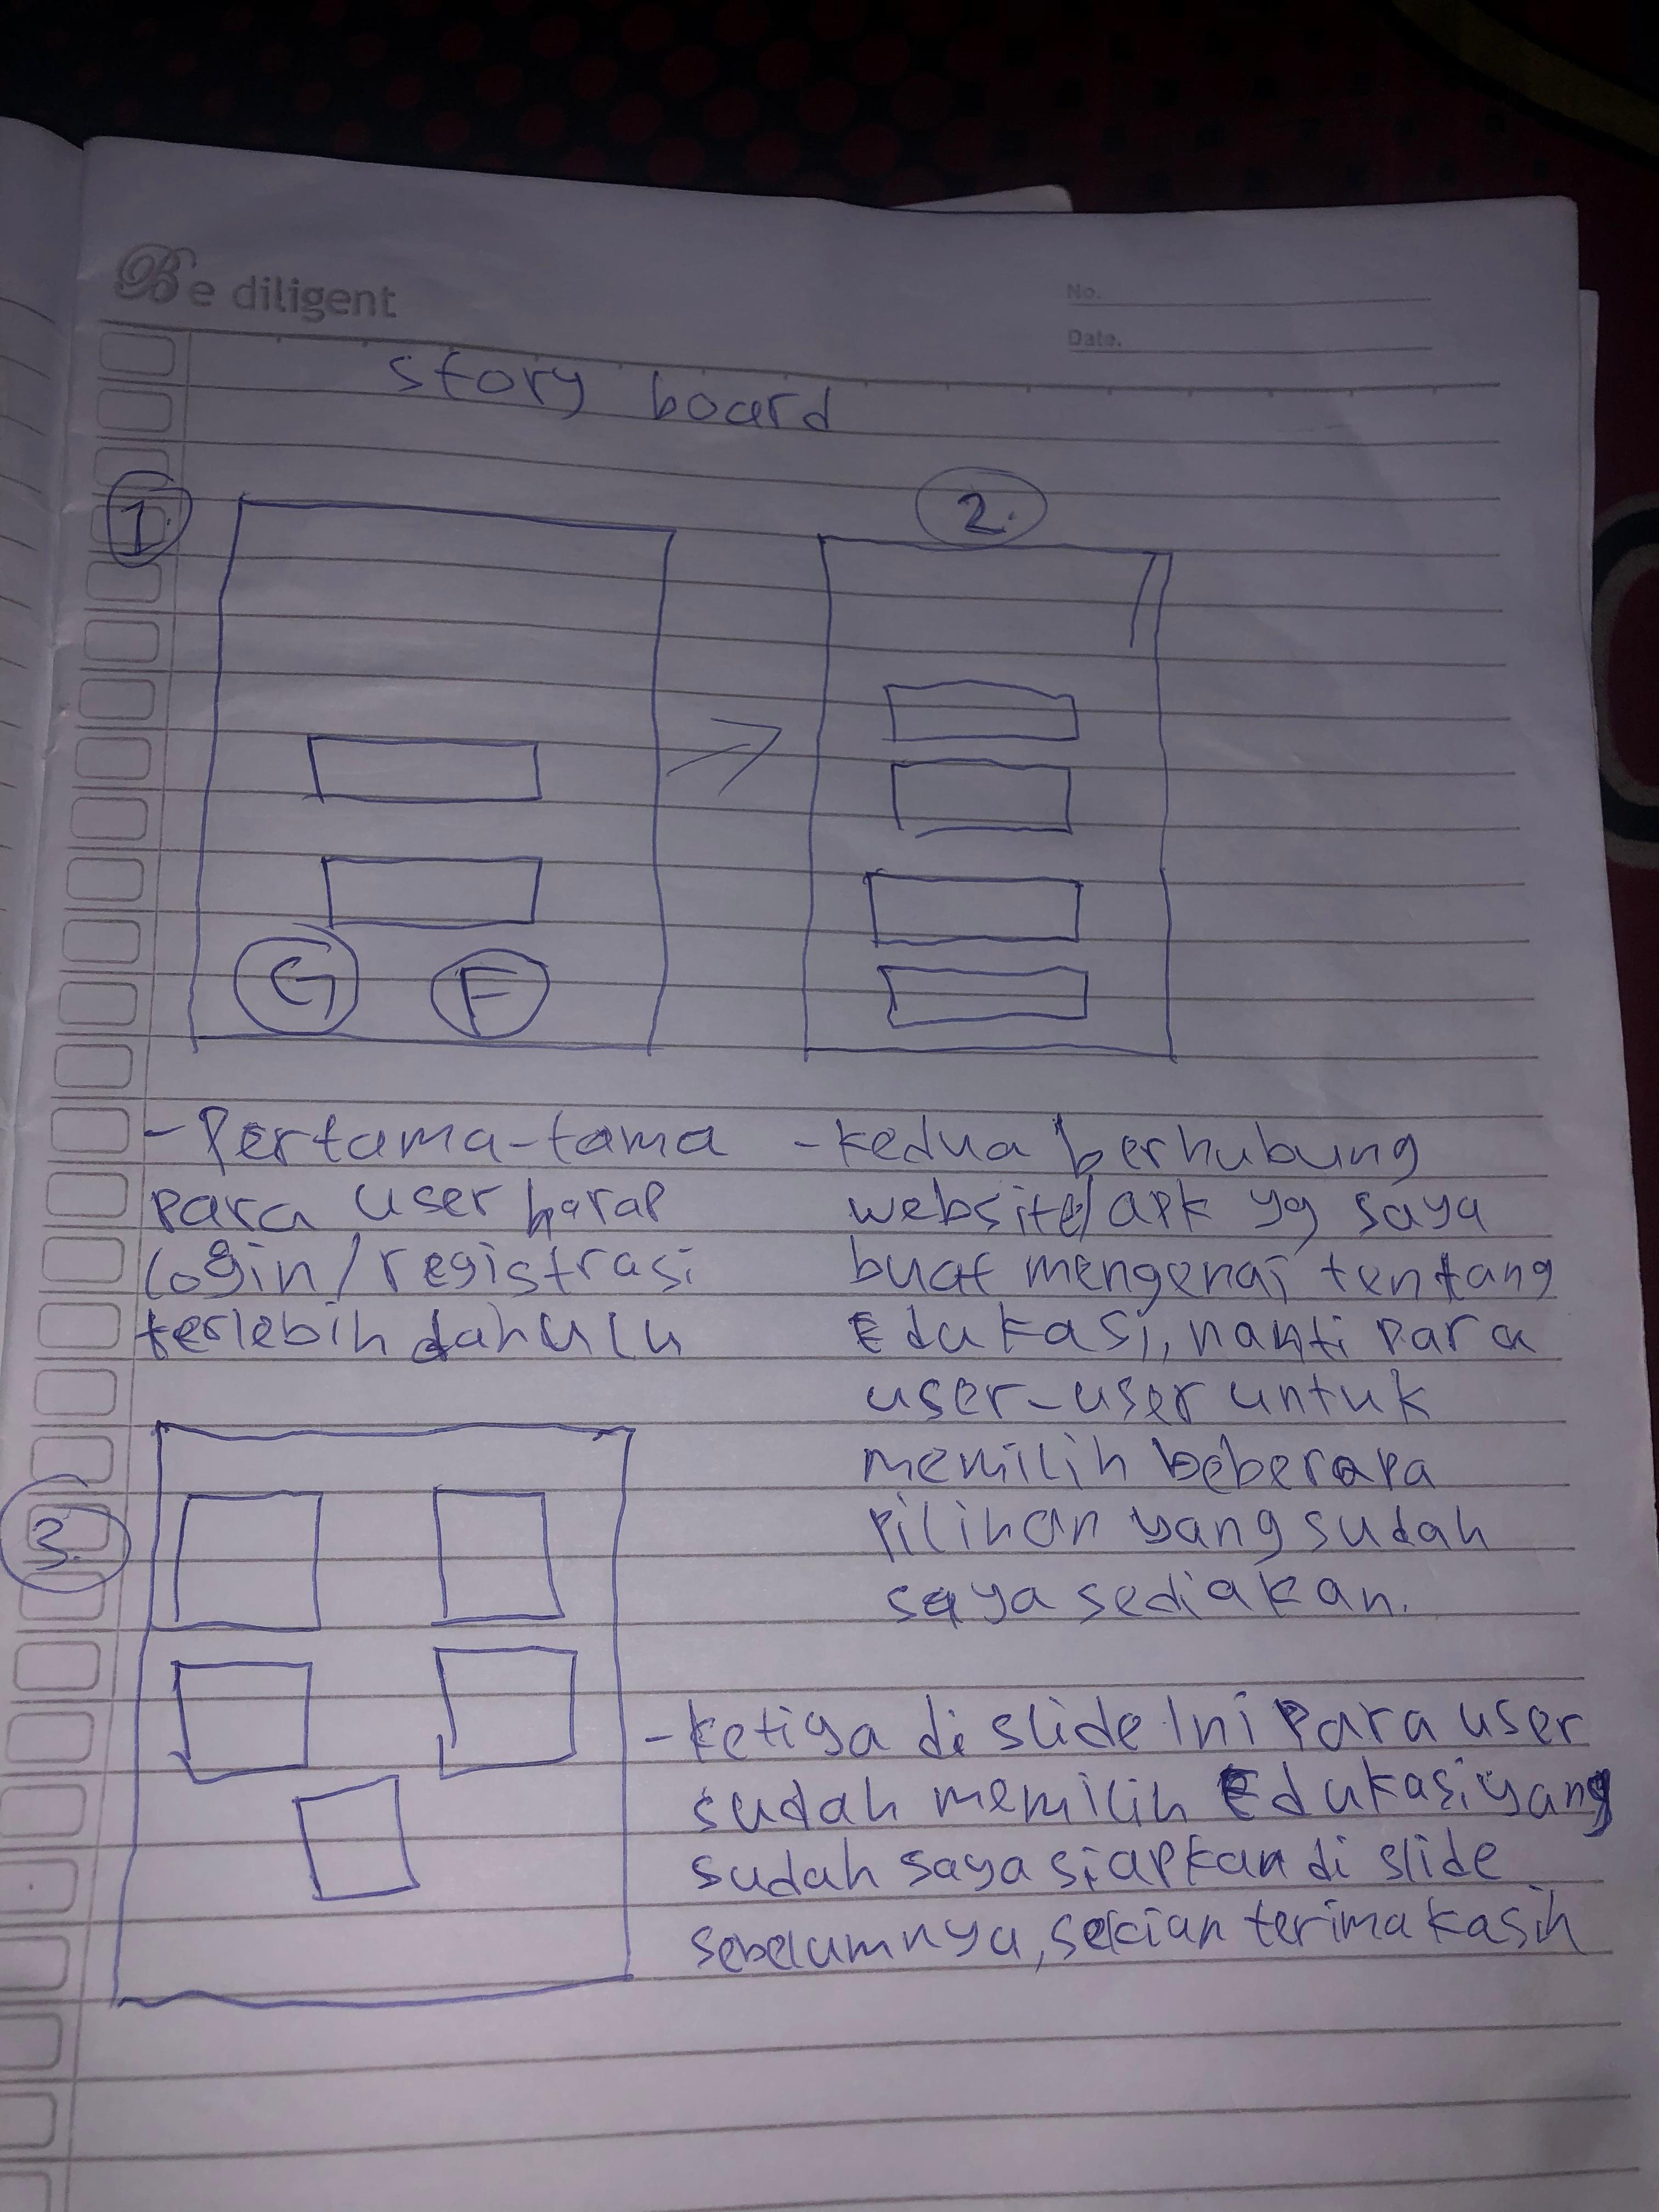 Be diligent
No.
Date.
story board
1.
2.
G F
- Pertama-tama
para user harap
login/registrasi
terlebih dahulu
- kedua berhubung
website/apk yg saya
buat mengenai tentang
Edukasi, nanti para
user-user untuk
memilih beberapa
pilihan yang sudah
saya sediakan.
3.
- ketiga di slide ini para user
sudah memilih Edukasi yang
sudah saya siapkan di slide
sebelumnya, sekian terima kasih